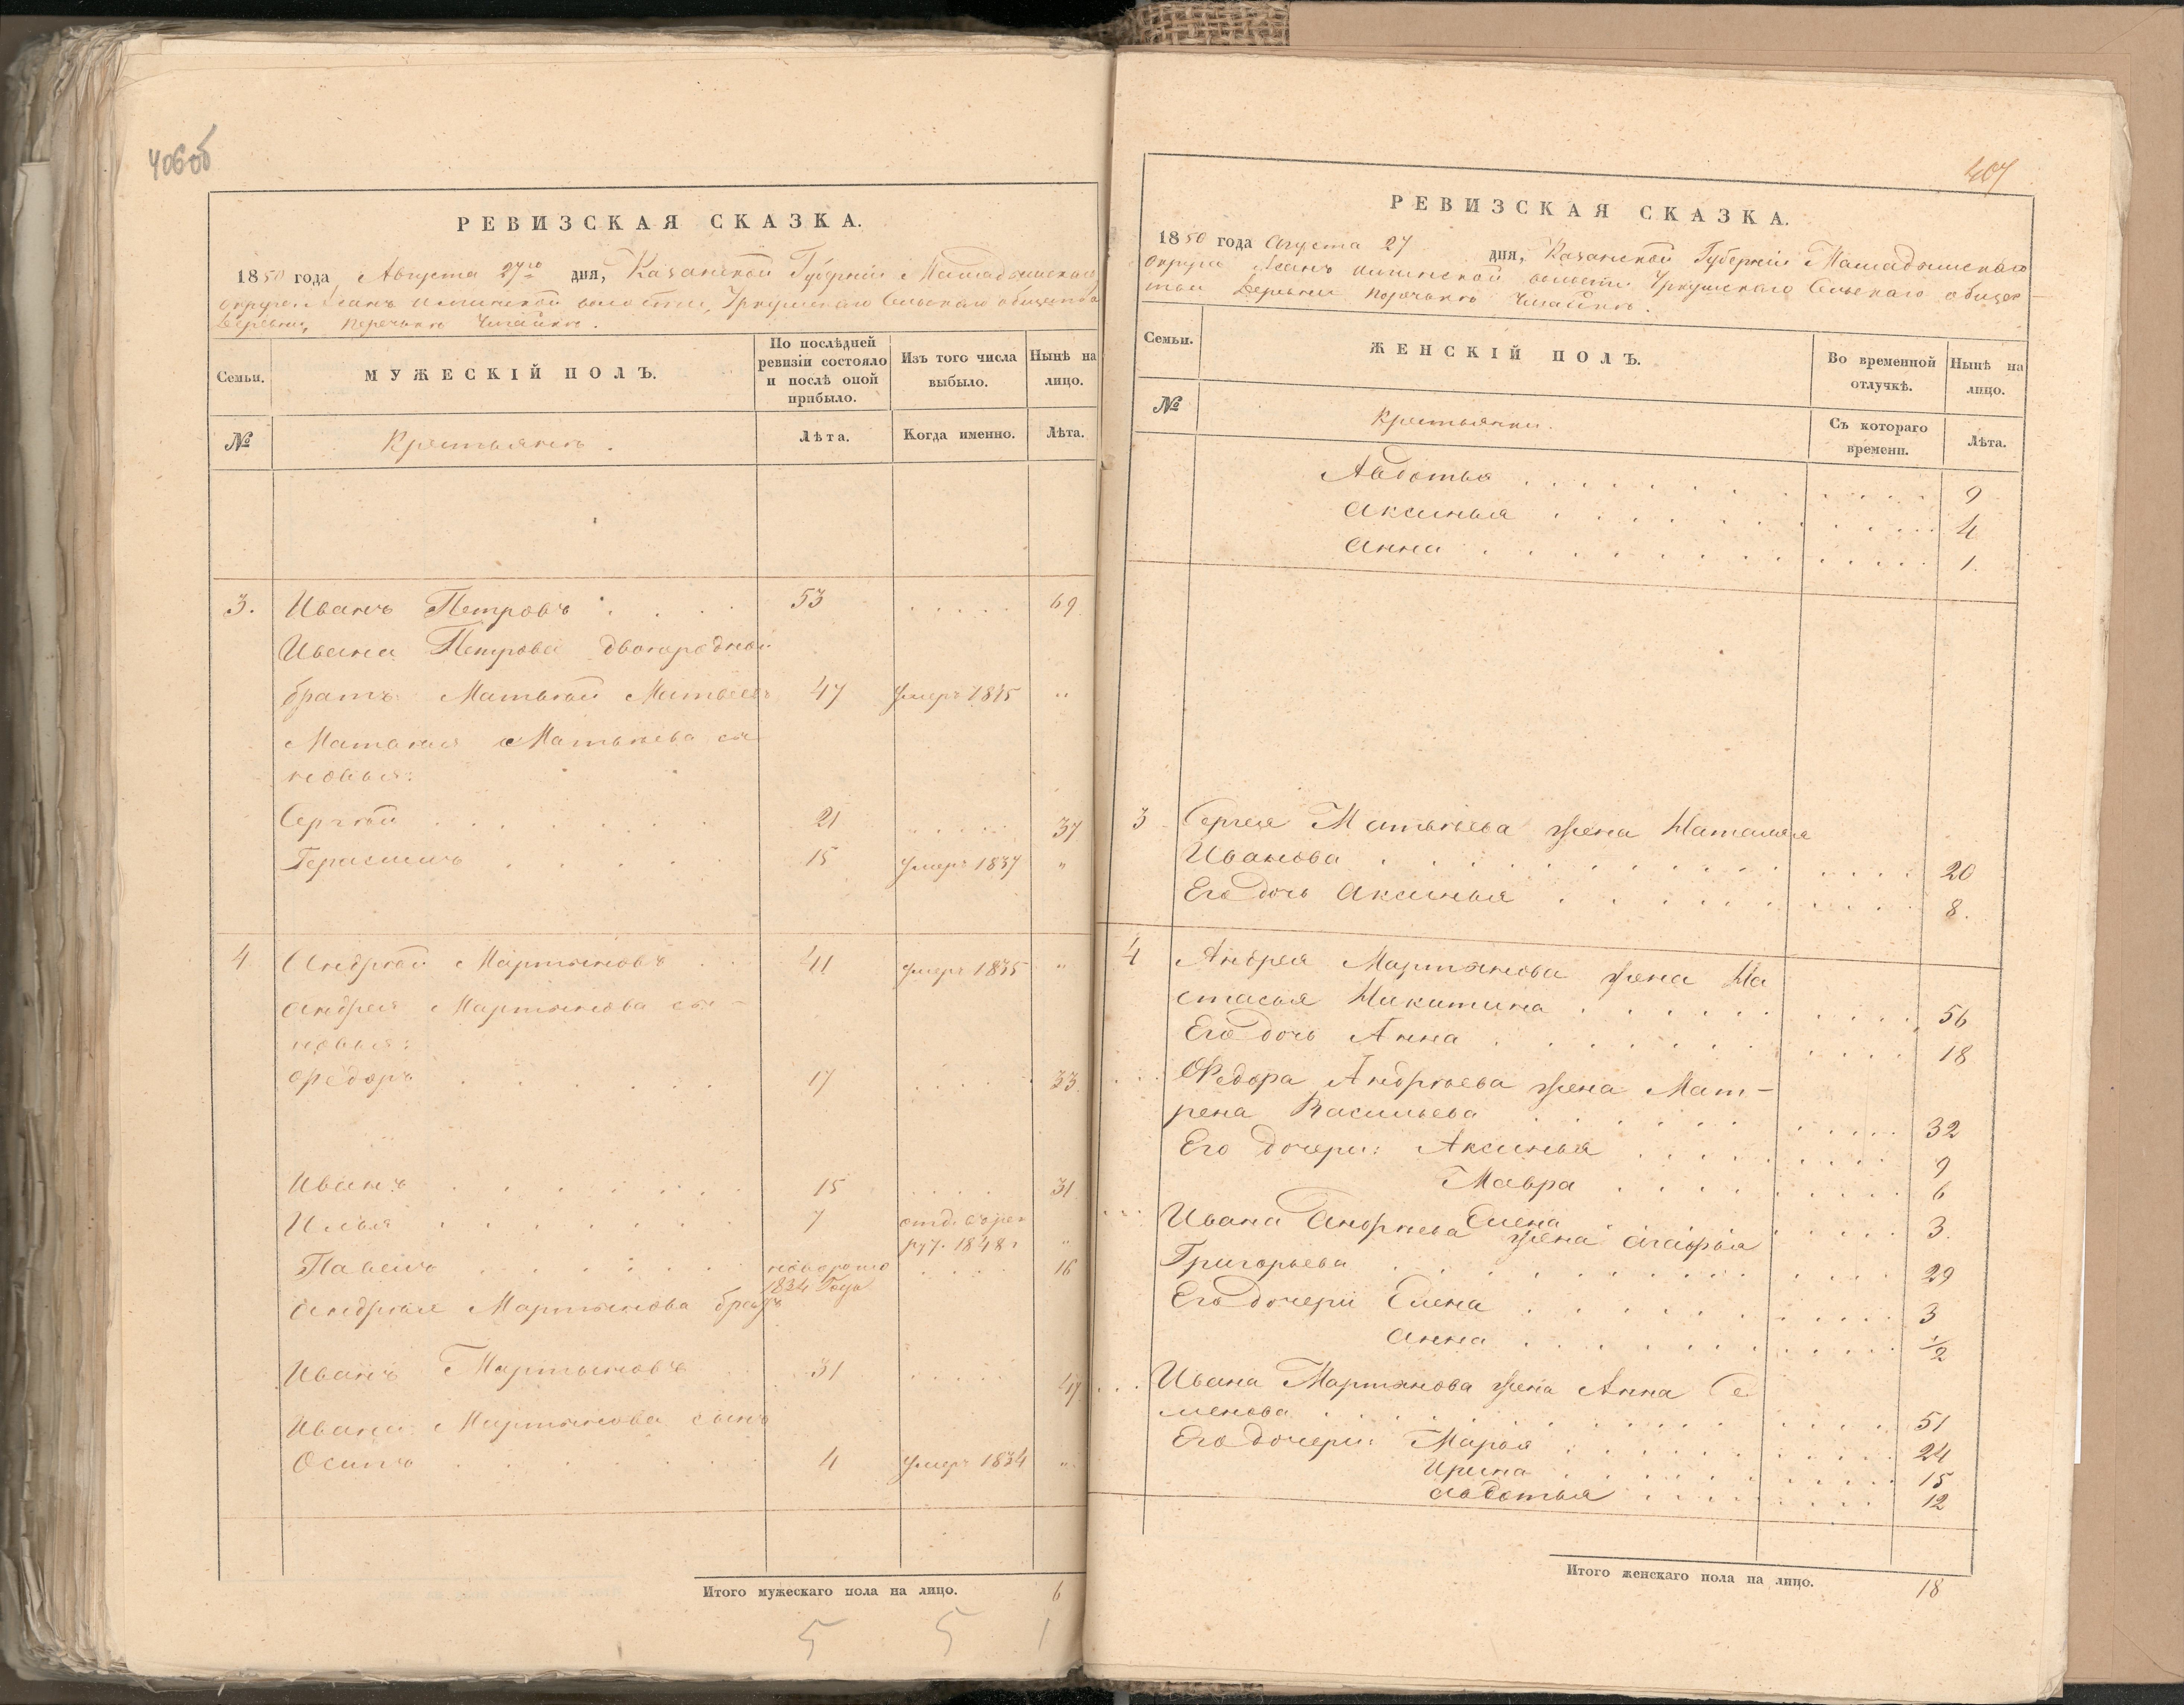 406об
РЕВИЗСКАЯ СКАЗКА.
1850 года Августа 27го дня, Казанской Губернiи Мамадышскаго
округа Асанъ Илгинской волости, Уркушскаго Сельскаго общества
Деревни, Поречьнъ
Семьи.
МУЖЕСКIЙ ПОЛЪ.
По послѣдней ревизiи состояло и послѣ оной прибыло.
Изъ того числа выбыло.
Нынѣ на лицо.
№
Крестьянъ.
Лѣта.
Когда именно.
Лѣта.
3. Иванъ Петровъ 53 69
Ивана Петрова двоюродной
братъ Матвѣй Матвеевъ 47 Умеръ 1835 "
Матвѣя Матвѣева сы
новья:
Сергѣй 21 37
Герасимъ 15 Умеръ 1837 "
4 Андрѣй Мартыновъ 41 Умеръ 1835 "
Андрея Мартынова сы-
новья:
Ѳедоръ 17 33
Иванъ 15 31
Илья 7 отд. въ рек
рут. 1848 г "
Павелъ новорожд 16
1834 Года
Андрѣя Мартынова братъ
Иванъ Мартыновъ 31 47
Ивана Мартынова сынъ
Осипъ 4 Умеръ 1834 "
Итого мужескаго пола на лицо. 6
5 5 1
407
РЕВИЗСКАЯ СКАЗКА.
1850 года Августа 27 дня, Казанской Губернiи Мамадышскаго
округа Асанъ Илгинской волости Уркушскаго Сельскаго общес-
тва Деревни Поречьнъ
Семьи.
ЖЕНСКIЙ ПОЛЪ.
Во временной отлучкѣ.
Нынѣ на лицо.
№
Крестьянки.
Съ котораго времени.
Лѣта.
Авдотья 9
Аксинья 4
Анна 1.
3 Сергея Матвѣева жена Наталья
Иванова 20
Его дочь Аксинья 8.
4 Андрея Мартынова жена На
стасья Никитина 56
Его дочь Анна 18
Ѳедора Андрѣева жена Мат-
рена Васильева 32
Его дочери: Аксинья 9
Мавра 6
Елена 3.
Ивана Андрѣева жена Агафья
Григорьева 29
Его дочери Елена 3
Анна 1/2
Ивана Мартынова жена Анна Се
менова 51
Его дочери: Марья 24
Ирина 15
Авдотья 12
Итого женскаго пола на лицо. 18